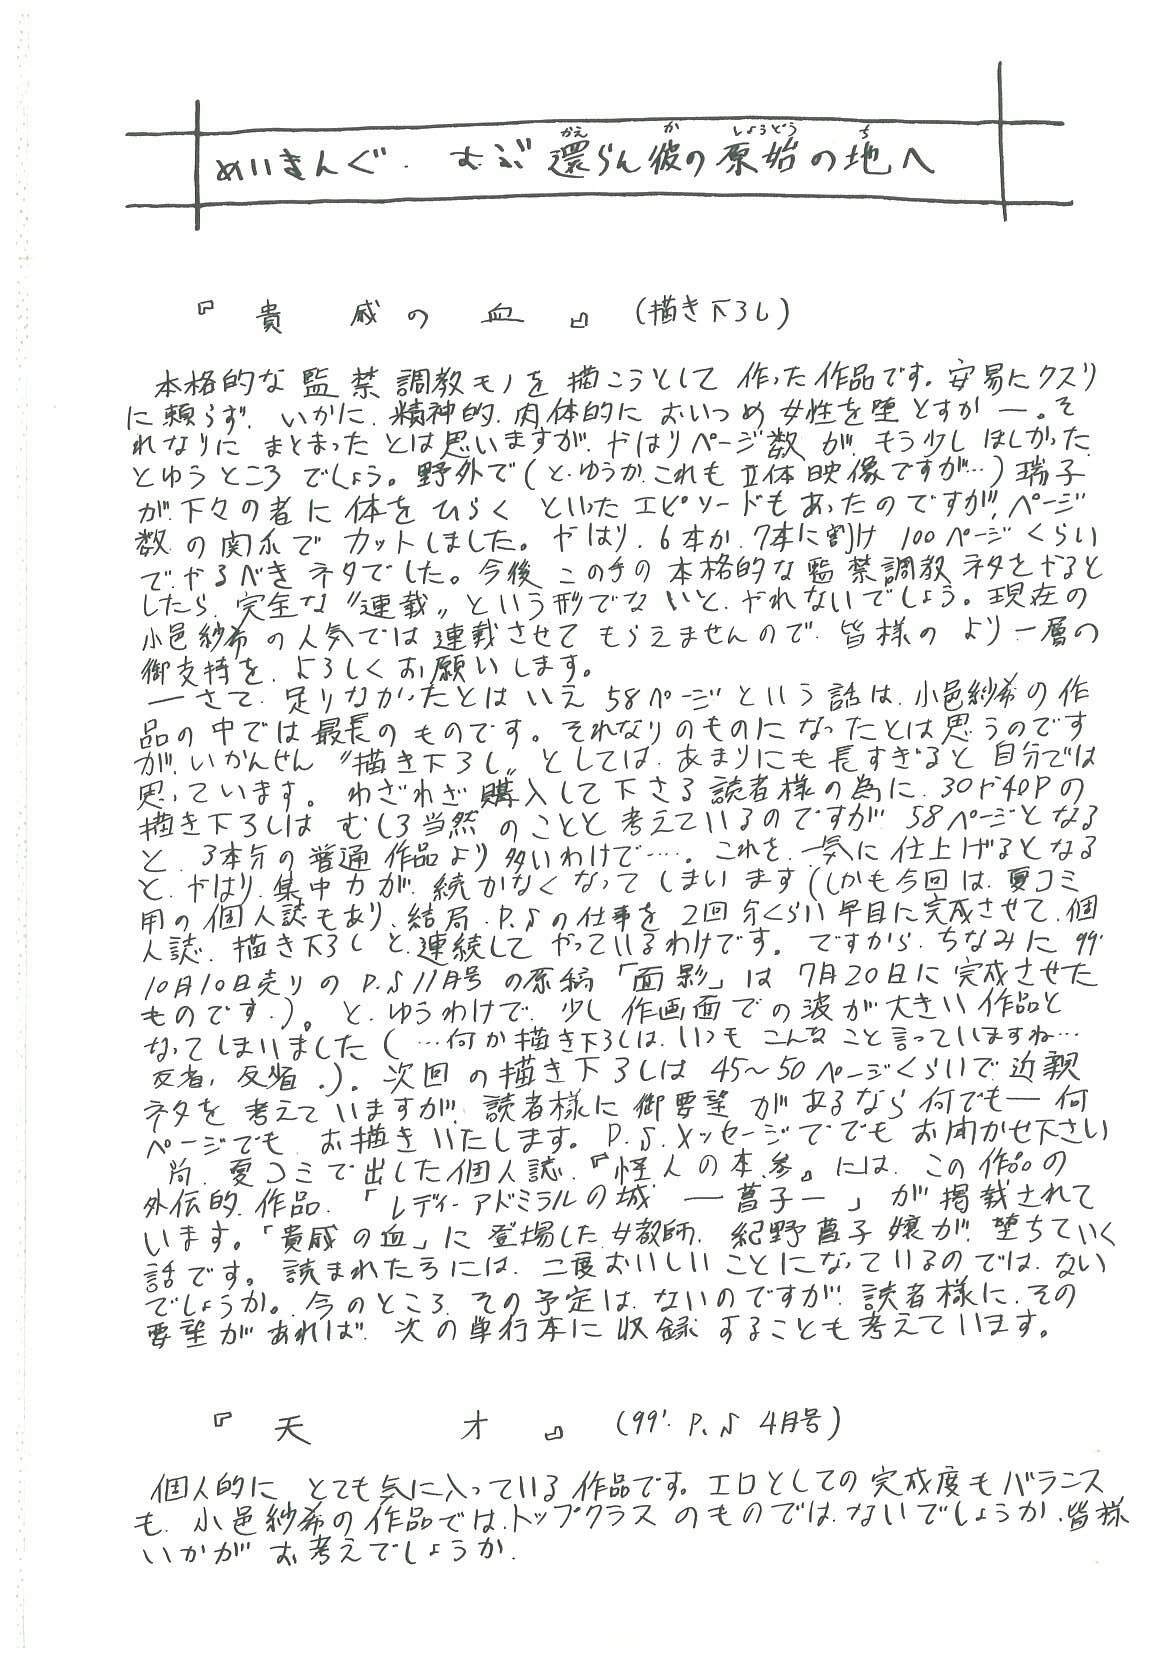 めいきんぐ. むぶ 還らん彼の原始の地へ
かえ か しょうどう ち
『 貴 戚 の 血 』 (描き下ろし)
本格的な監禁調教モノを描こうとして作った作品です。安易にクスリ
に頼らず、いかに、精神的、肉体的においつめ女性を堕とすか―。そ
れなりにまとまったとは思いますが、やはりページ数が、もう少しほしかった
とゆうところでしょう。野外で(と、ゆうか、これも立体映像ですが…)瑞子
が、下々の者に体をひらくといったエピソードもあったのですが、ページ
数の関係でカットしました。やはり、6本か、7本に割け100ページくらい
で、やるべきネタでした。今後この手の本格的な監禁調教ネタをやると
したら、完全な〝連載〟という形でないと、やれないでしょう。現在の
小邑紗希の人気では連載させてもらえませんので、皆様のより一層の
御支持を、よろしくお願いします。
―さて、足りなかったとはいえ58ページという話は、小邑紗希の作
品の中では最長のものです。それなりのものになったとは思うのです
が、いかんせん〝描き下ろし〟としては、あまりにも長すぎると自分では
思っています。わざわざ購入して下さる読者様の為に、30や40Pの
描き下ろしはむしろ当然のことと考えているのですが58ページとなる
と、3本分の普通作品より多いわけで……。これを、一気に仕上げるとなる
と、やはり、集中力が、続かなくなってしまいます(しかも今回は、夏コミ
用の個人誌もあり、結局、P.Sの仕事を2回分くらい早目に完成させて、個
人誌、描き下ろしと、連続してやっているわけです。ですから、ちなみに99'
10月10日売りのP.S11月号の原稿「面影」は7月20日に完成させた
ものです.)。と、ゆうわけで、少し作画面での波が大きい作品と
なってしまいました(…何か描き下ろしは、いつもこんなこと言っていますね…
反省、反省.)。次回の描き下ろしは45～50ページくらいで近親
ネタを考えていますが、読者様に御要望があるなら何でも―何
ページでも、お描きいたします。P.S.メッセージででもお聞かせ下さい
尚、夏コミで出した個人誌、『怪人の本.参』には、この作品の
外伝的、作品、「レディーアドミラルの城 ―菖子―」が掲載されて
います。「貴戚の血」に登場した女教師、紀野菖子嬢が、堕ちていく
話です。読まれたろには、二度おいしいことになっているのでは、ない
でしょうか。今のところ、その予定は、ないのですが、読者様に、その
要望があれば、次の単行本に収録することも考えています。
『 天 才 』 (99'. P.S 4月号)
個人的にとても気に入っている作品です。エロとしての完成度もバランス
も、小邑紗希の作品では、トップクラスのものでは、ないでしょうか、皆様
いかがお考えでしょうか.